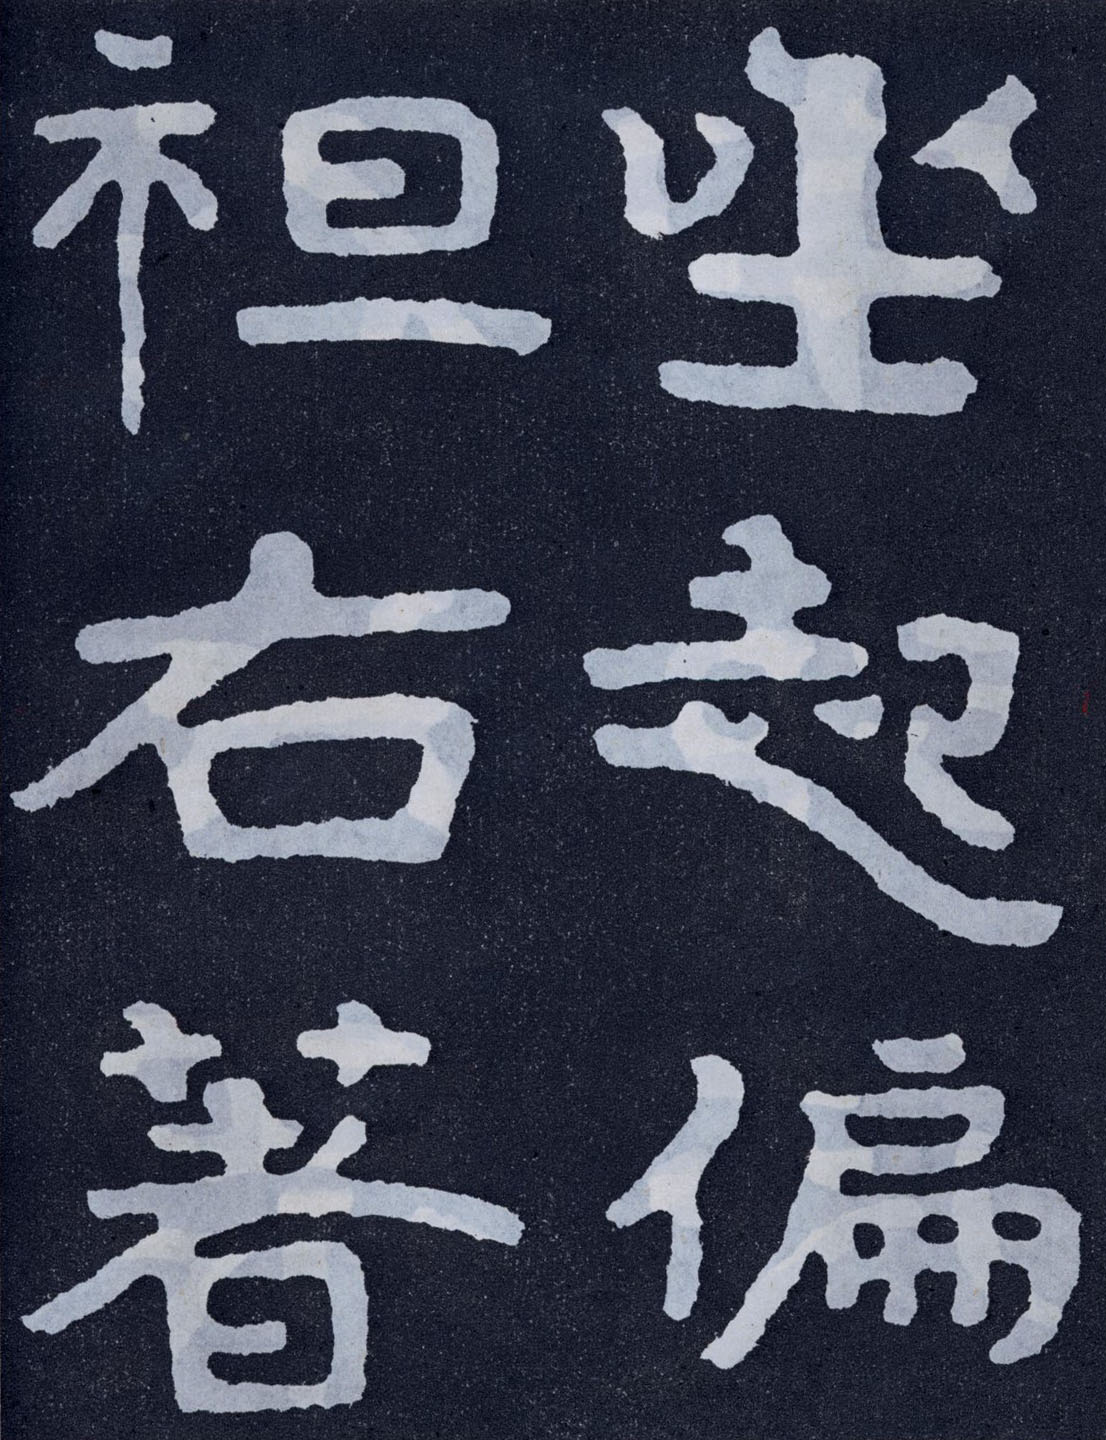 坐起偏
袒右著